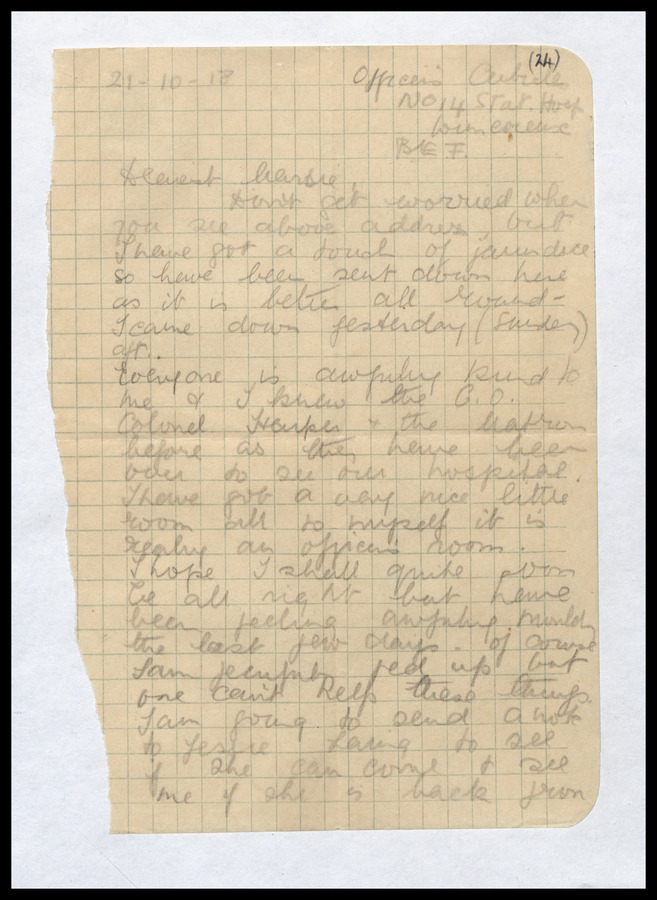 (24)
21-10-18 Officers Cubicles
No 14 Stat. Hosp
Wimereux
B.E.F.
Dearest
Don't get worried when
you see above address, but
I have got a touch of jaundice
so have been sent down here
as it is better all round -
I came down yesterday (Sunday)
aft.
Everyone is awfully kind to
me & I knew the C.O.
Colonel Harper & the Matron
before as they have been
over to see our hospital.
I have got a very nice little
room all to myself it is
really an officers room.
I hope I shall quite soon
be all right but have
been feeling awfully mouldy
the last few days. of course
I am fed up but
one can't help these things.
I am going to send a note
to Leslie Laing to see
if she can come & see
me if she is back from